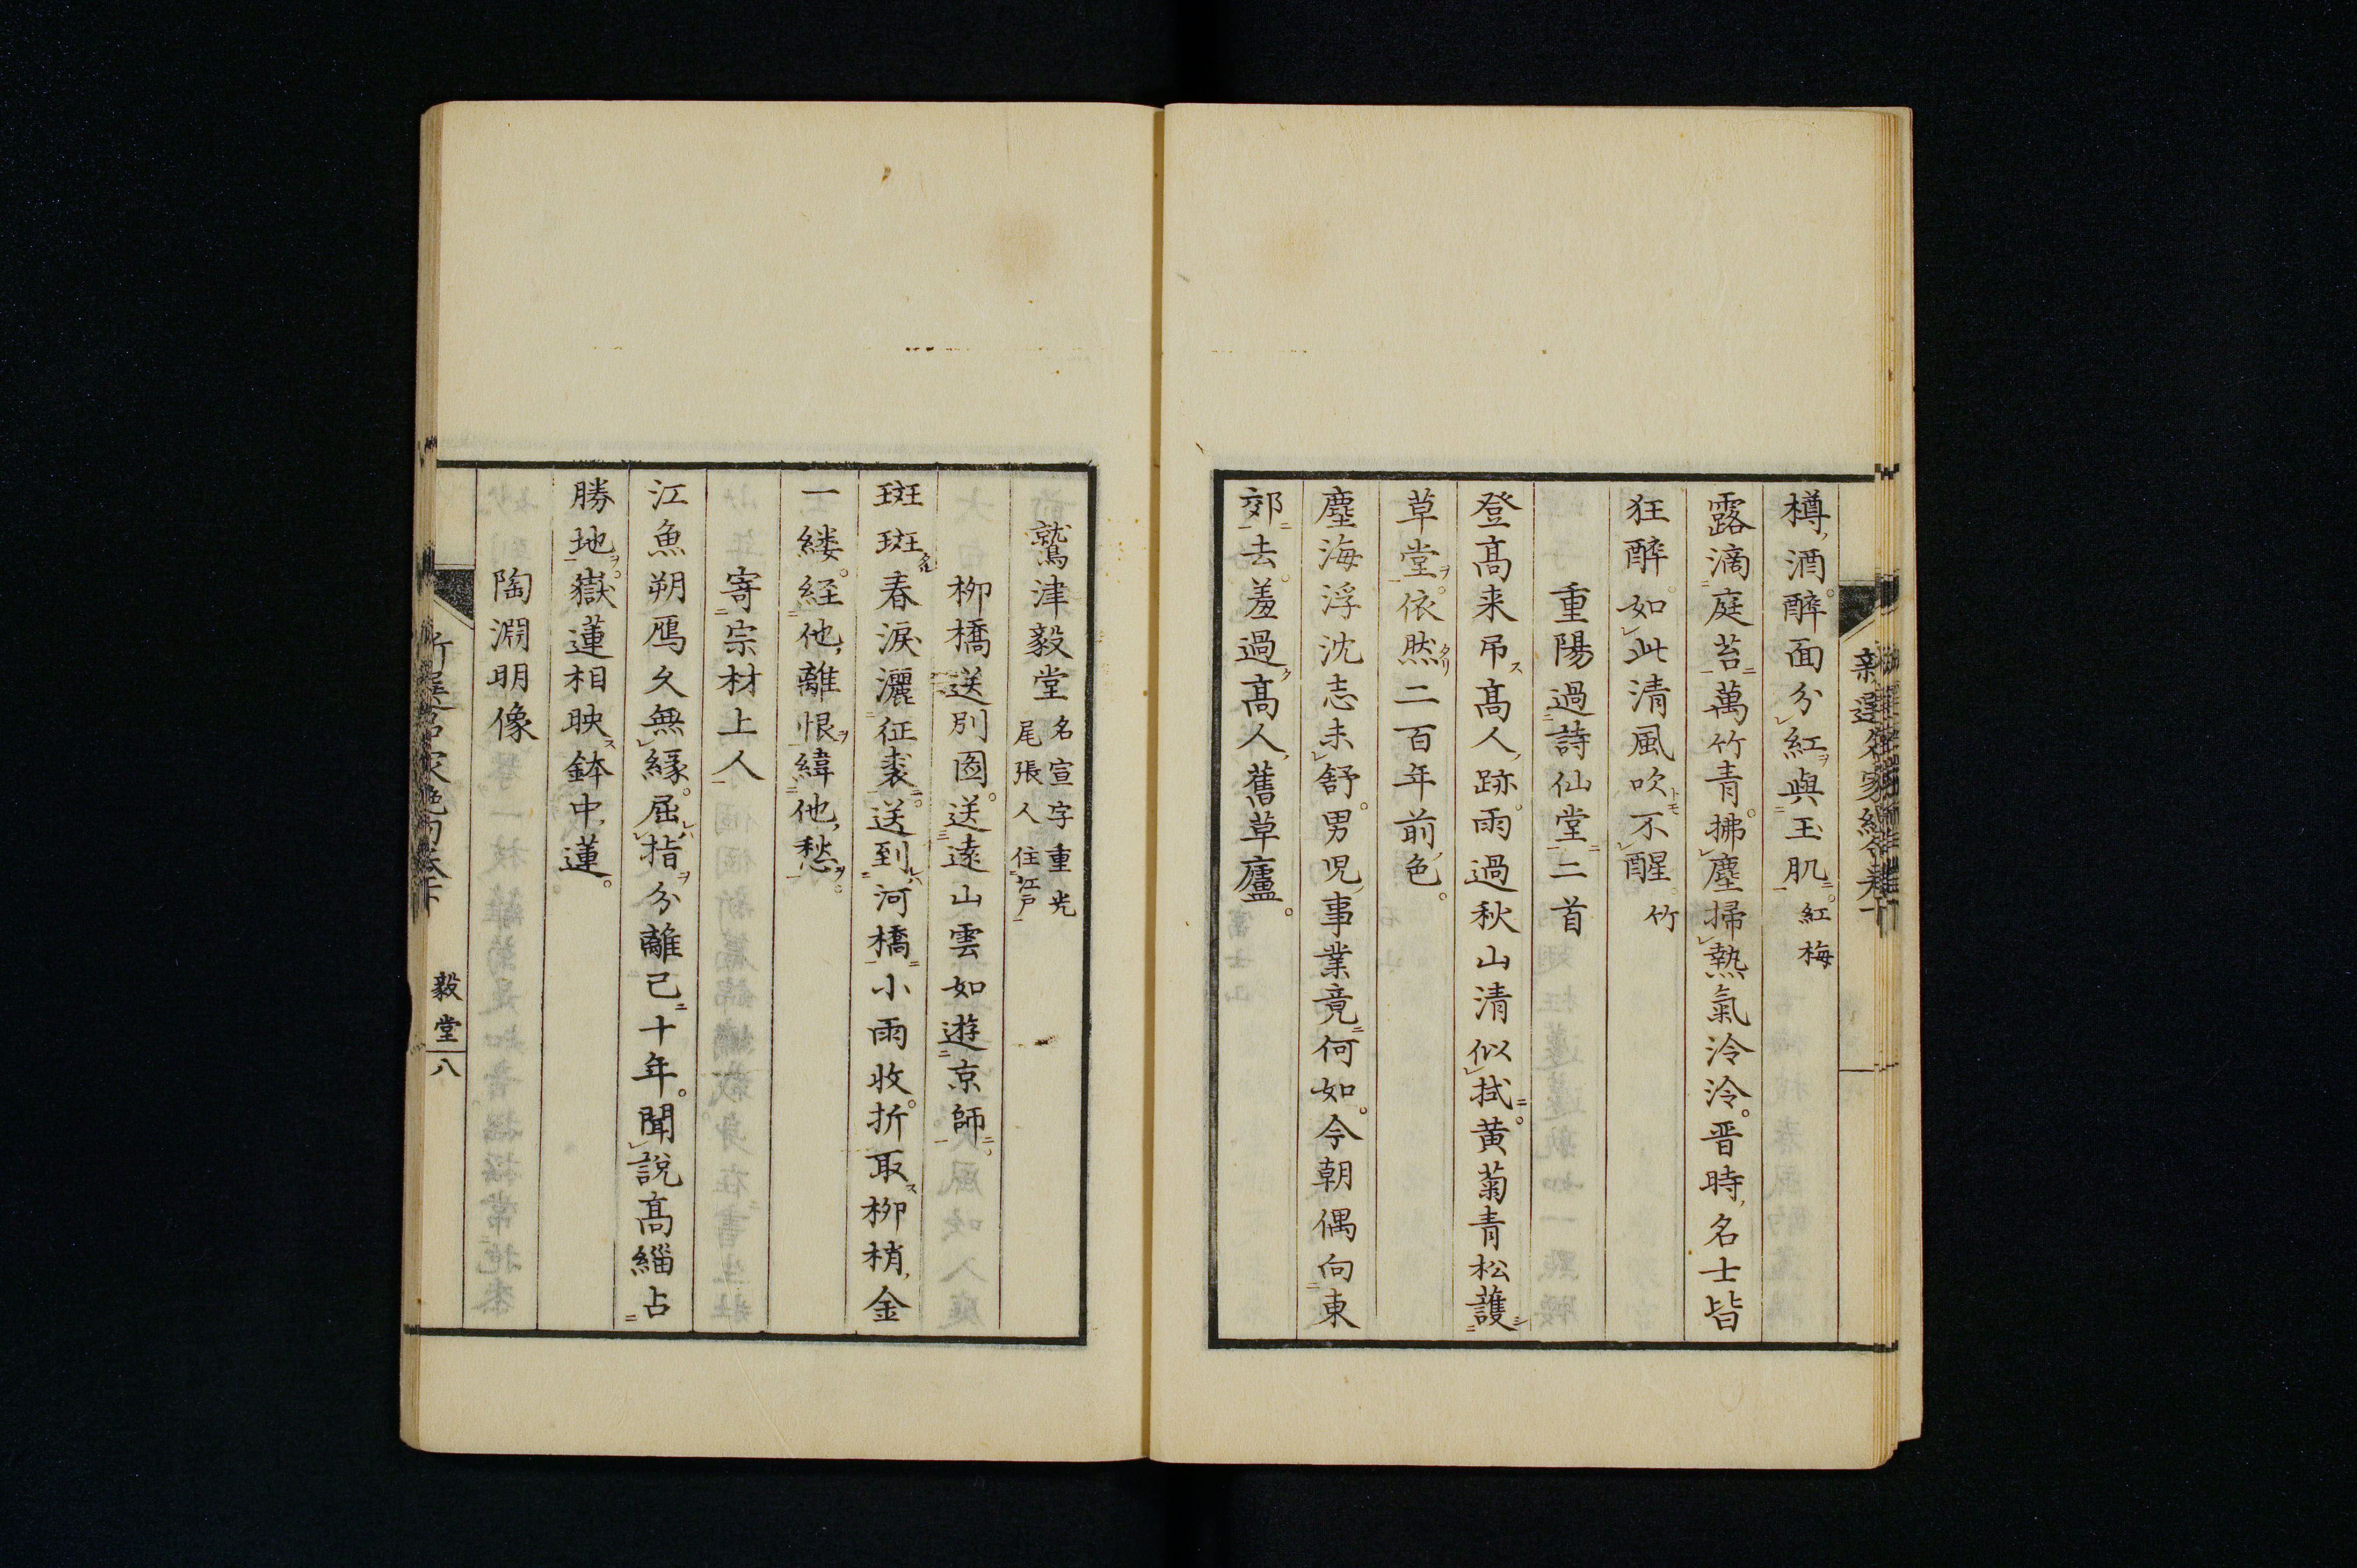 樽酒醉面分紅與玉肌 紅梅
露滴庭苔萬竹青拂塵掃熱氣泠泠晋時名士皆
狂醉如此清風吹不醒 竹
重陽過詩仙堂二首
登高来吊高人跡雨過秋山清似拭黄菊青松護
草堂依然二百年前色
塵海浮沈志未舒男児事業竟何如今朝偶向東
郊去羞過高人舊草廬
鷲津毅堂 名宣字重光
尾張人住江戸
柳橋送別圖送遠山雲如遊京師
斑斑春淚灑征裘送到河橋小雨收折取柳梢金
一縷経他離恨緯他愁
寄宗材上人
江魚朔鴈久無緣屈指分離已十年聞說高緇占
勝地嶽蓮相映鉢中蓮
陶淵明像
毅堂 八